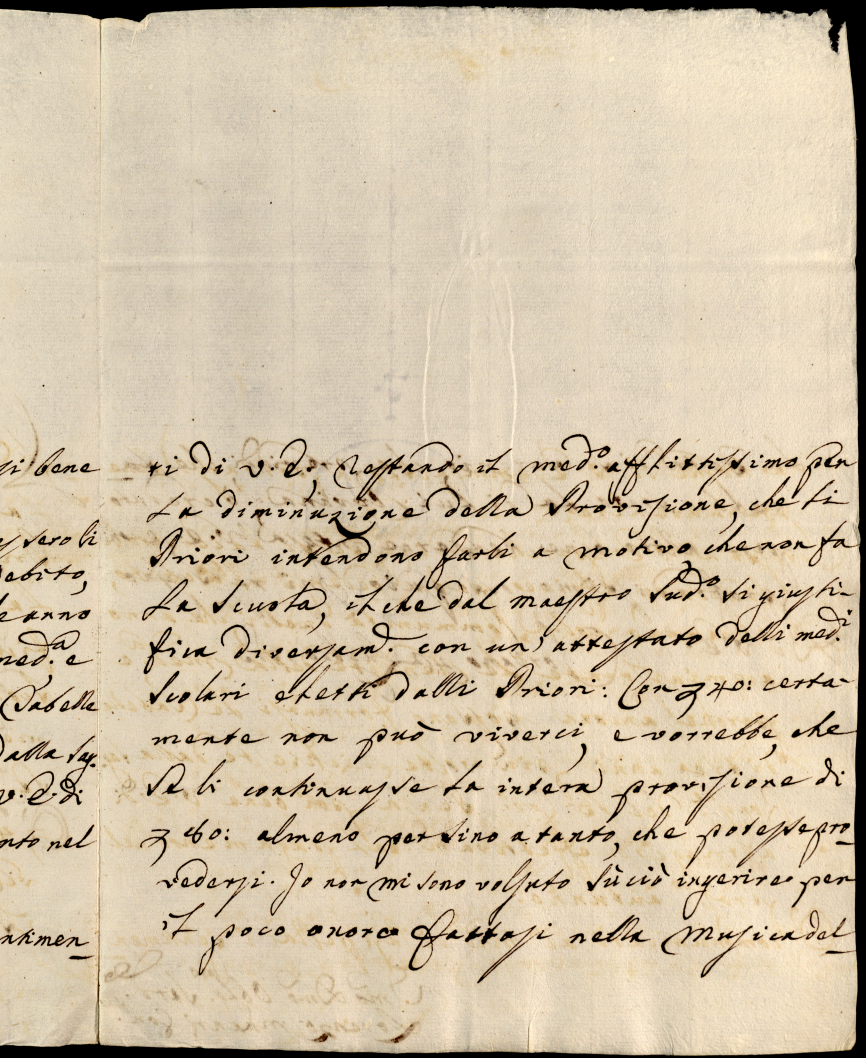 si bene
sseroli
debito,
e anno
med.ª e
Tabella
dalla sag.
v. E. di
nto nel
ntimen_
ti di v. E., restando il med.º afflittissimo per
La diminuzione della Provisione, che li
Priori intendono farli a motivo, che non fa
La Scuola, il che dal maestro Sud.º si giusti-
fica diversam.e con un' attestato delli med.i
Scolari eletti dalli Priori: Con 40: certa-
mente non può viverci, e vorrebbe, che
se li continuasse La intera provisione di
60: almeno per sino a tanto, che potesse pro_
vedersi. Io non mi sono volsuto sù ciò ingerire per
il poco onore fattosi nella Musica del_